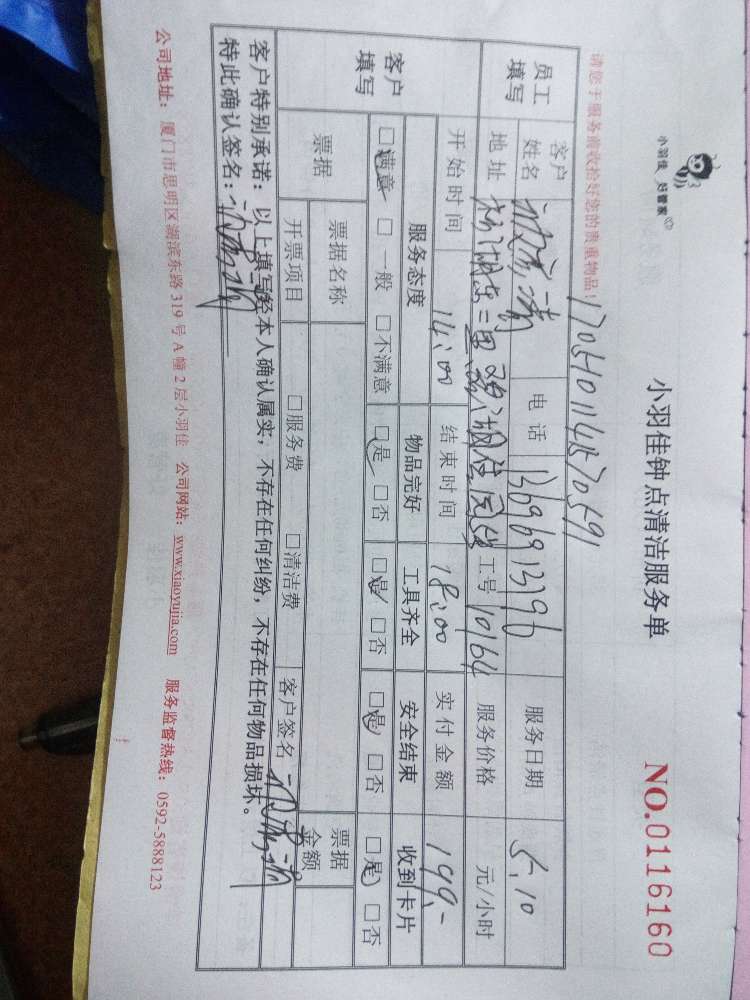 小羽佳 好管家
小羽佳钟点清洁服务单
NO.0116160
请您于服务前收拾好您的贵重物品！
1705101145870591
员工填写 客户姓名 电话 13696913796 服务日期 5.10
地址 工号 10164 服务价格 元/小时
客户填写 开始时间 14:00 结束时间 18:00 实付金额 149.-
服务态度 物品完好 工具齐全 安全结束 收到卡片
□满意 □一般 □不满意 □是 □否 □是 □否 □是 □否 □是 □否
票据 票据名称 票据金额
开票项目 □服务费 □清洁费 客户签名
客户特别承诺：以上填写经本人确认属实，不存在任何纠纷，不存在任何物品损坏。
特此确认签名：
公司地址：厦门市思明区湖滨东路319号A幢2层小羽佳 公司网站：www.xiaoyujia.com 服务监督热线：0592-5888123